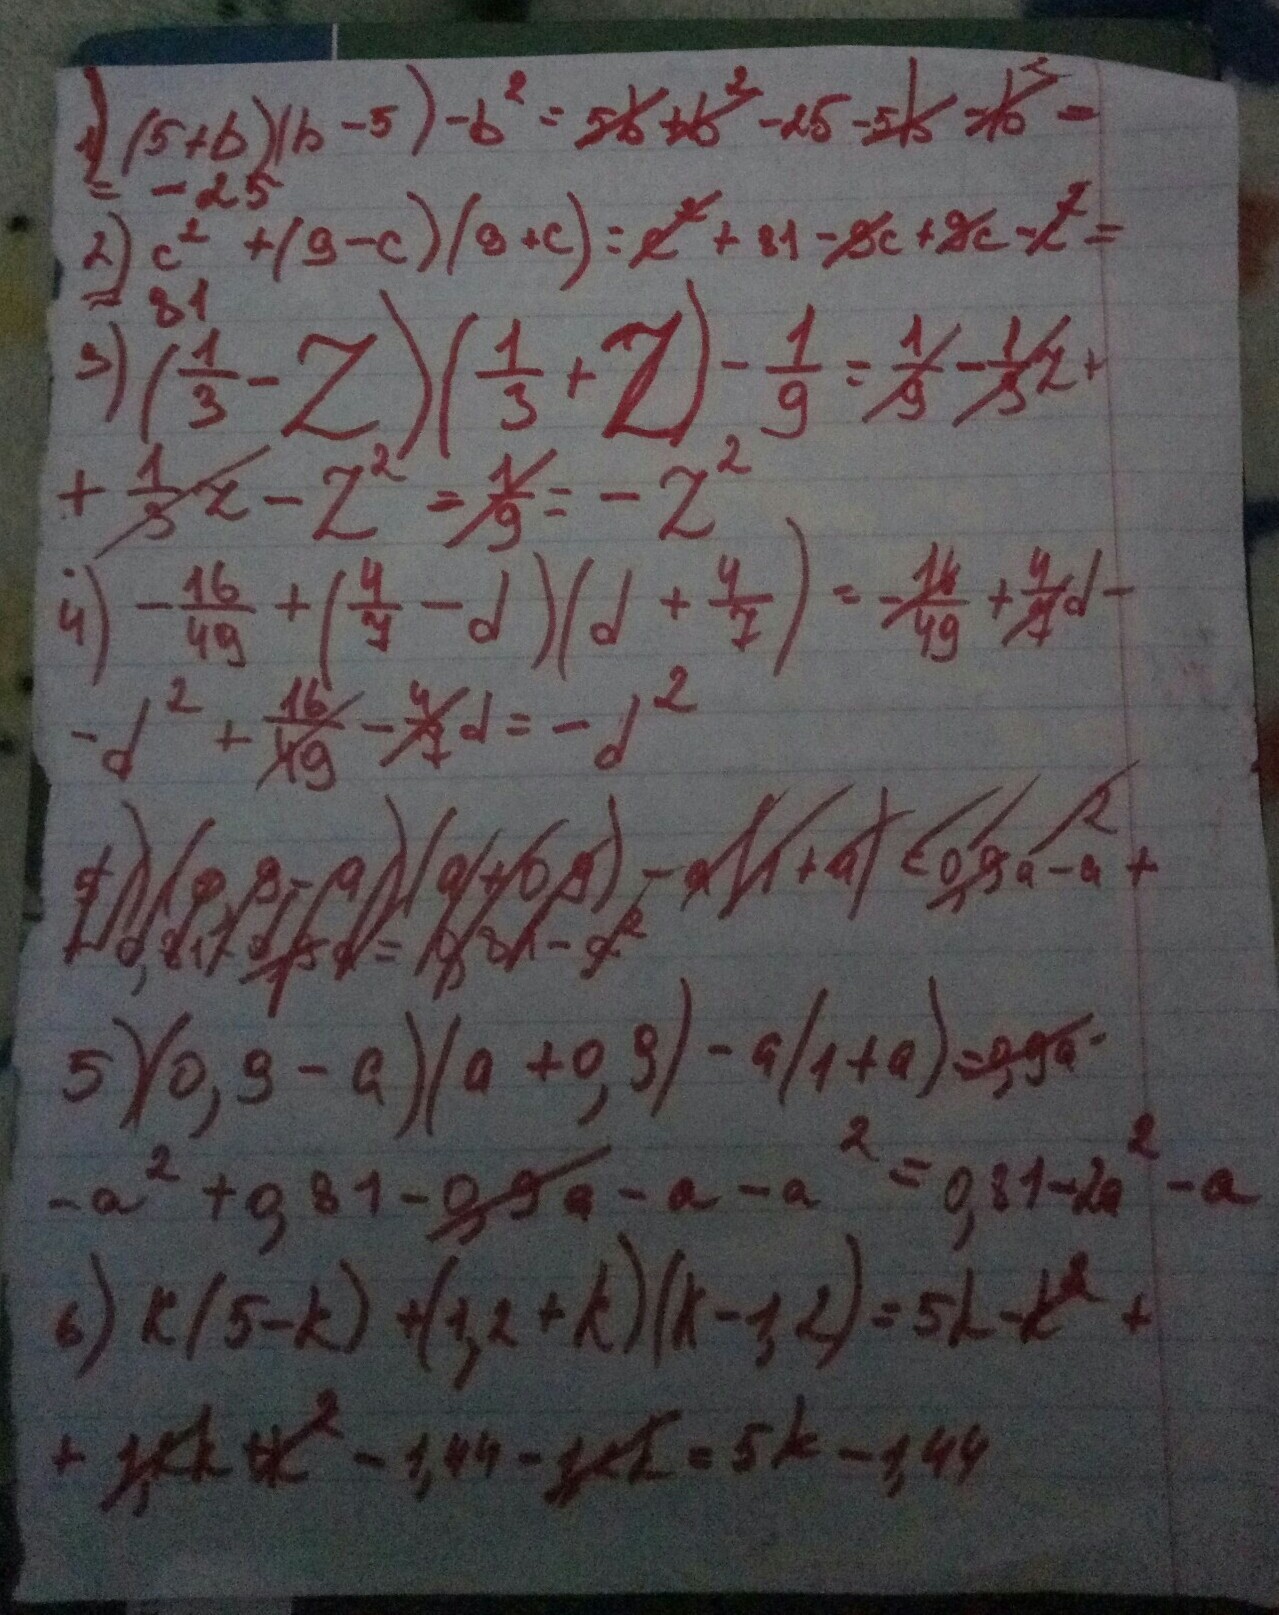 1) (5+b)(b-5)-b² = 5b+b²-25-5b-b² =
= -25
2) c² +(9-c)(9+c) = c² + 81-9c+9c-c² =
= 81
3) (1/3 - Z)(1/3 + Z) - 1/9 = 1/9 - 1/3z +
+ 1/3 z - Z² = 1/9 = - Z²
4) - 16/49 + (4/7 - d)(d + 4/7) = - 16/49 + 4/7 d -
- d² + 16/49 - 4/7 d = - d²
(0,9-a)(a+0,9) - a(1+a) = 0,9a-a² +
5) (0,9-a)(a+0,9) - a(1+a) = 0,9a-
-a² + 0,81-0,9a - a - a² = 0,81-2a² - a
6) k(5-k) + (1,2+k)(k-1,2) = 5k-k² +
+ 1,2k+k² - 1,44 - 1,2k = 5k - 1,44